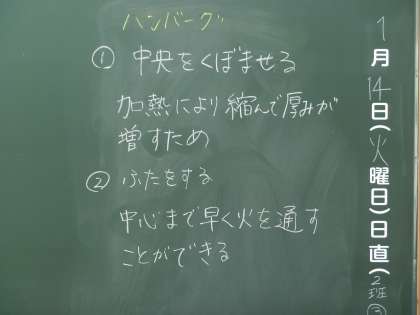 ハンバーグ
① 中央をくぼませる
加熱により縮んで厚みが
増すため
② ふたをする
中心まで早く火を通す
ことができる
1月14日(火曜日)日直(2班③